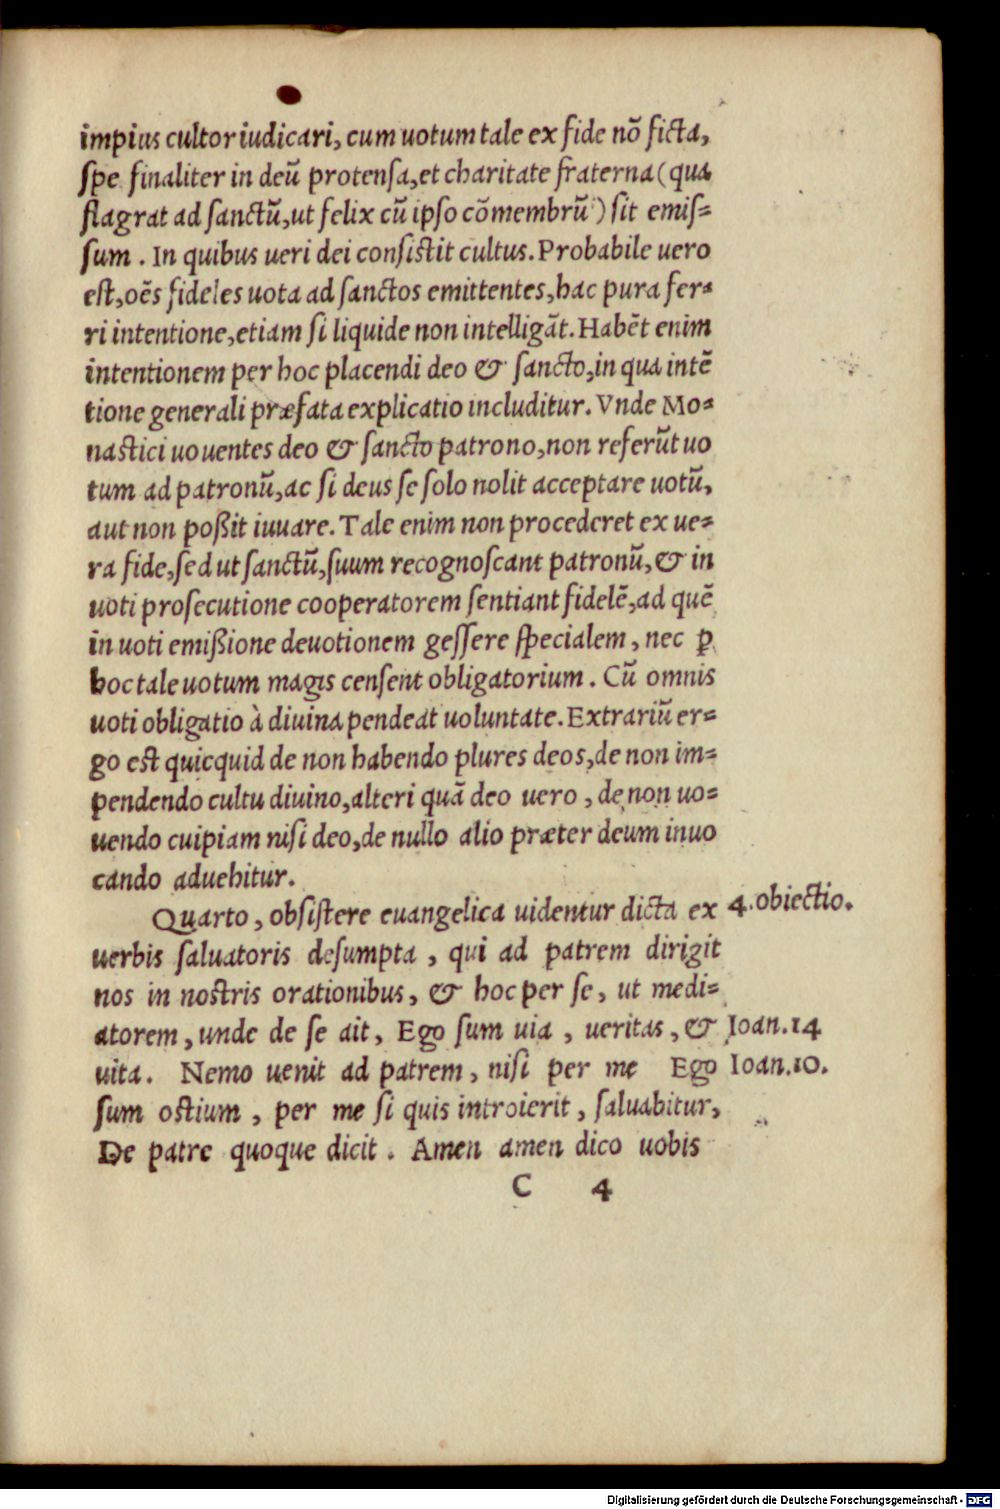 impius cultor iudicari, cum uotum tale ex fide nō ficta,
ſpe finaliter in deū protenſa, et charitate fraterna (qua
flagrat ad ſanctū, ut felix cū ipſo cōmembrū) ſit emiſ-
ſum. In quibus ueri dei conſiſtit cultus. Probabile uero
eſt, oēs fideles uota ad ſanctos emittentes, hac pura fer-
ri intentione, etiam ſi liquide non intelligāt. Habēt enim
intentionem per hoc placendi deo & ſancto, in qua intē
tione generali præfata explicatio includitur. Vnde Mo-
naſtici uouentes deo & ſancto patrono, non referūt uo
tum ad patronū, ac ſi deus ſe ſolo nolit acceptare uotū,
aut non poßit iuuare. Tale enim non procederet ex ue-
ra fide, ſed ut ſanctū, ſuum recognoſcant patronū, & in
uoti proſecutione cooperatorem ſentiant fidelē, ad quē
in uoti emißione deuotionem geſſere ſpecialem, nec ꝑ
hoc tale uotum magis cenſent obligatorium. Cū omnis
uoti obligatio à diuina pendeat uoluntate. Extrariū er-
go eſt quicquid de non habendo plures deos, de non im-
pendendo cultu diuino, alteri quā deo uero, de non uo-
uendo cuipiam niſi deo, de nullo alio præter deum inuo
cando aduehitur.
Quarto, obſiſtere euangelica uidentur dicta ex 4. obiectio.
uerbis ſaluatoris deſumpta, qui ad patrem dirigit
nos in noſtris orationibus, & hoc per ſe, ut medi-
atorem, unde de ſe ait, Ego ſum uia, ueritas, & Ioan. 14
uita. Nemo uenit ad patrem, niſi per me Ego Ioan. 10.
ſum oſtium, per me ſi quis introierit, ſaluabitur,
De patre quoque dicit. Amen amen dico uobis
C 4
Digitalisierung gefördert durch die Deutsche Forschungsgemeinschaft - DFG